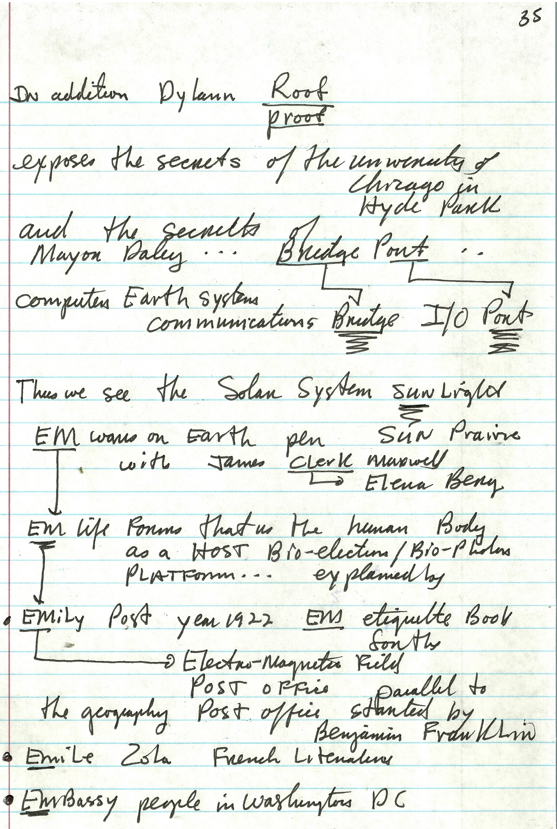 35
In addition Dylann Roof
proof
exposes the secrets of the university of
Chicago in
Hyde Park
and the secrets of
Mayor Daley ... Bridge Port ..
computers Earth system
communications Bridge I/O Port
Thus we see the Solar System Sun Light
EM wars on Earth per Sun Prairie
with James Clerk Maxwell
Elena Berg
EM life forms that use the human Body
as a HOST Bio-electron/Bio-Photon
PLATform... explained by
• EMily Post year 1922 EM etiquette Book
for the
Electro-Magnetic Field
POST OFFice parallel to
the geography Post office started by
Benjamin Franklin
• Emile Zola French Literature
• EMBassy people in Washington DC